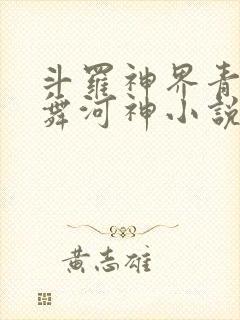 斗羅神界青
舞河神小說
黃志雄